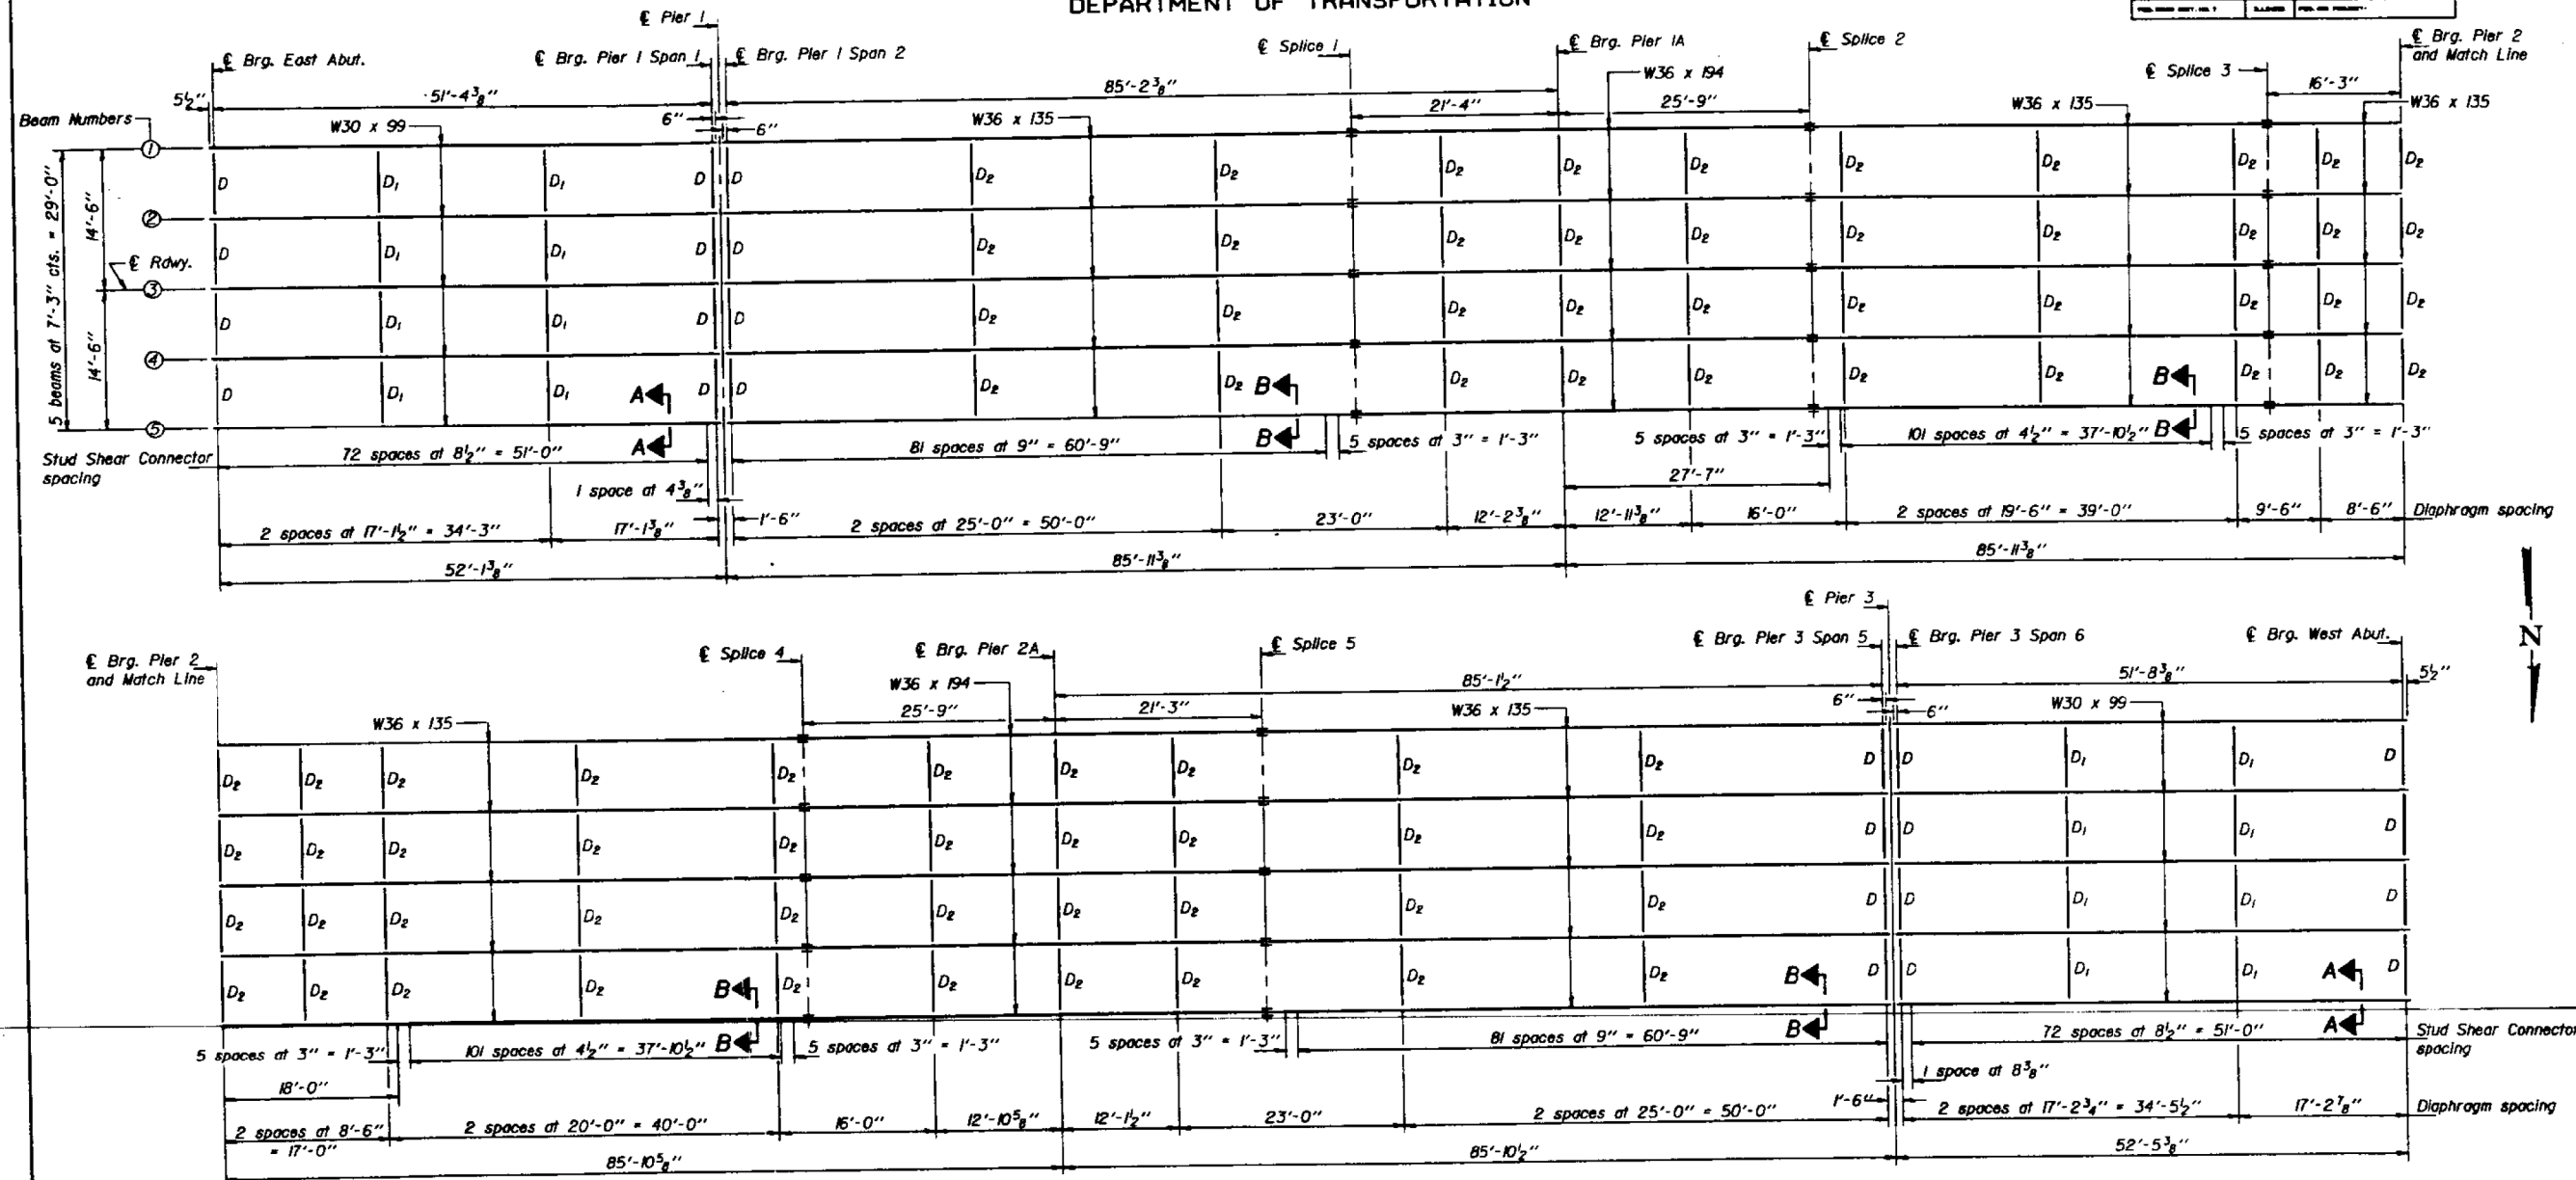 DEPARTMENT OF TRANSPORTATION
℄ Pier 1
℄ Brg. East Abut.
℄ Brg. Pier 1 Span 1
℄ Brg. Pier 1 Span 2
℄ Splice 1
℄ Brg. Pier 1A
℄ Splice 2
℄ Splice 3
℄ Brg. Pier 2
and Match Line
5½"
51'-4⅜"
6"
6"
85'-2⅜"
21'-4"
25'-9"
16'-3"
Beam Numbers
W30 x 99
W36 x 135
W36 x 194
W36 x 135
W36 x 135
1
2
3
4
5
5 beams at 7'-3" cts. = 29'-0"
14'-6"
14'-6"
℄ Rdwy.
D D₁ D₁ D D D₂ D₂ D₂ D₂ D₂ D₂ D₂ D₂ D₂ D₂
D D₁ D₁ D D D₂ D₂ D₂ D₂ D₂ D₂ D₂ D₂ D₂ D₂
D D₁ D₁ D D D₂ D₂ D₂ D₂ D₂ D₂ D₂ D₂ D₂ D₂
D D₁ D₁ D D D₂ D₂ D₂ D₂ D₂ D₂ D₂ D₂ D₂ D₂
A
A
B
B
B
B
Stud Shear Connector
spacing
72 spaces at 8½" = 51'-0"
1 space at 4⅜"
81 spaces at 9" = 60'-9"
5 spaces at 3" = 1'-3"
5 spaces at 3" = 1'-3"
27'-7"
101 spaces at 4½" = 37'-10½"
5 spaces at 3" = 1'-3"
2 spaces at 17'-1½" = 34'-3"
17'-1⅜"
1'-6"
2 spaces at 25'-0" = 50'-0"
23'-0"
12'-2⅜"
12'-11⅜"
16'-0"
2 spaces at 19'-6" = 39'-0"
9'-6"
8'-6"
Diaphragm spacing
52'-1⅜"
85'-11⅜"
85'-11⅜"
N
℄ Brg. Pier 2
and Match Line
℄ Splice 4
℄ Brg. Pier 2A
℄ Splice 5
℄ Pier 3
℄ Brg. Pier 3 Span 5
℄ Brg. Pier 3 Span 6
℄ Brg. West Abut.
W36 x 135
25'-9"
W36 x 194
21'-3"
85'-1½"
W36 x 135
6"
6"
51'-8⅜"
W30 x 99
5½"
D₂ D₂ D₂ D₂ D₂ D₂ D₂ D₂ D₂ D₂ D D D₁ D₁ D
D₂ D₂ D₂ D₂ D₂ D₂ D₂ D₂ D₂ D₂ D D D₁ D₁ D
D₂ D₂ D₂ D₂ D₂ D₂ D₂ D₂ D₂ D₂ D D D₁ D₁ D
D₂ D₂ D₂ D₂ D₂ D₂ D₂ D₂ D₂ D₂ D D D₁ D₁ D
B
B
B
B
A
A
5 spaces at 3" = 1'-3"
101 spaces at 4½" = 37'-10½"
5 spaces at 3" = 1'-3"
5 spaces at 3" = 1'-3"
81 spaces at 9" = 60'-9"
72 spaces at 8½" = 51'-0"
Stud Shear Connector
spacing
18'-0"
1 space at 8⅜"
2 spaces at 8'-6"
= 17'-0"
2 spaces at 20'-0" = 40'-0"
16'-0"
12'-10⅝"
12'-1½"
23'-0"
2 spaces at 25'-0" = 50'-0"
1'-6"
2 spaces at 17'-2¾" = 34'-5½"
17'-2⅞"
Diaphragm spacing
85'-10⅝"
85'-10½"
52'-5⅜"